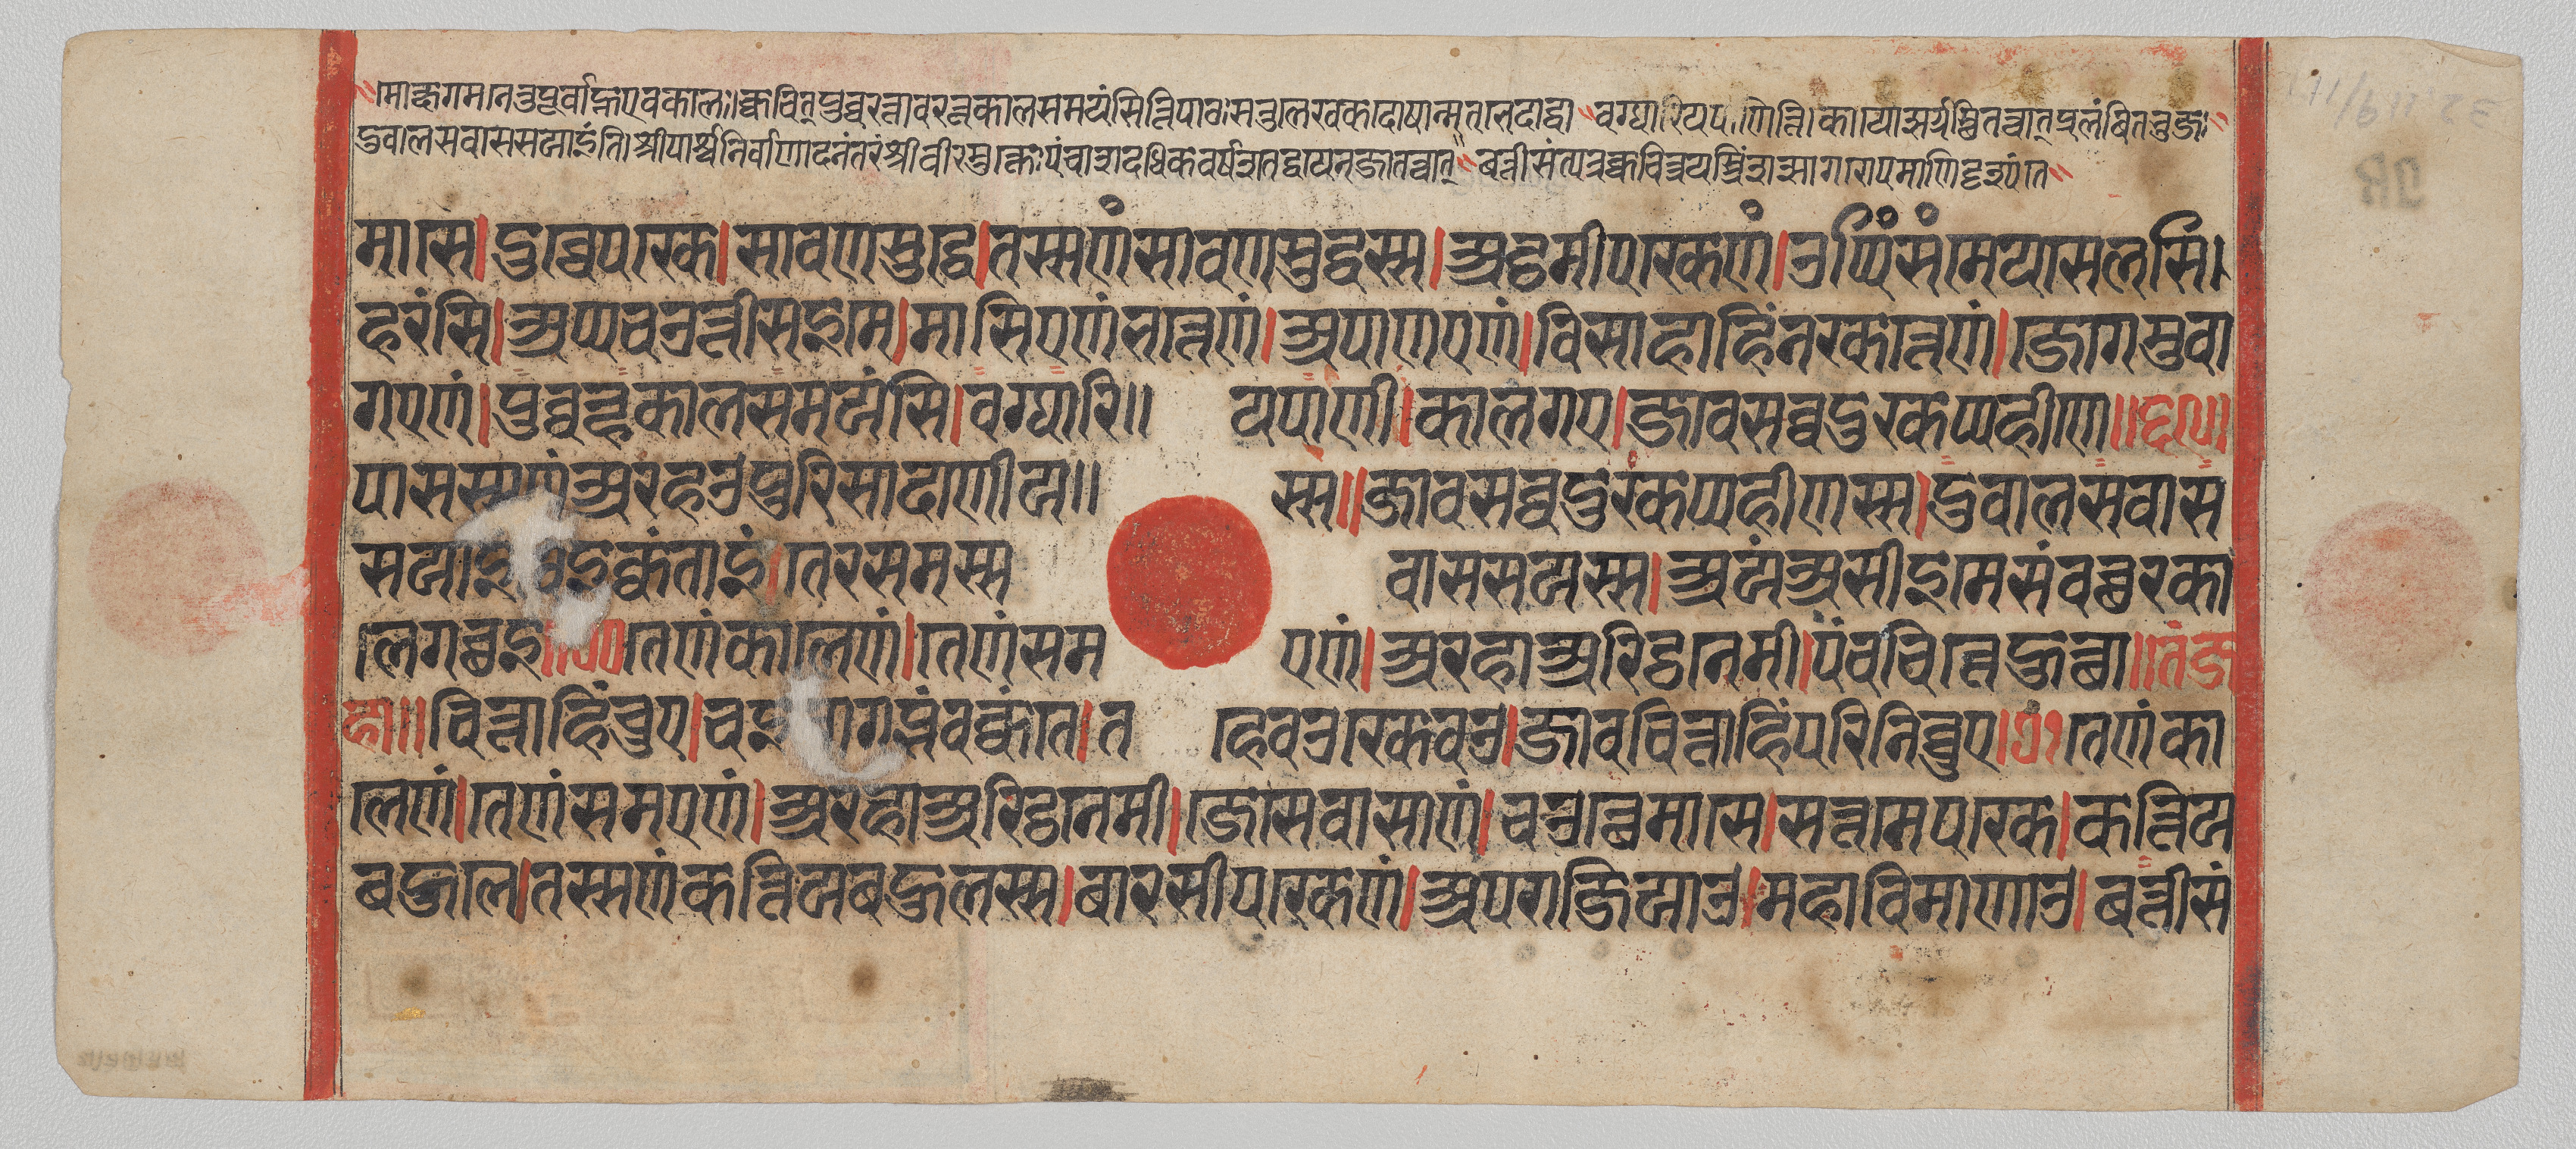 मोक्षगमने तु पूर्वाह्ण एव कालः। क्वचित् पुव्वरत्तावरत्तकालसमयंसि त्ति पाठः स तु लेखकदोषान्मतभेदाद्वा वग्घारियपाणि त्ति। कायोत्सर्गस्थितत्वात् प्रलंबितभुजः
दुवालसवाससयाइं ति। श्रीपार्श्वनिर्वाणादनंतरं श्रीवीरमुक्तेः पंचाशदधिकवर्षशतद्वयेन जातत्वात् बत्तीसं त्यत्र क्वचित् त्रयस्त्रिंशत्सागरोपमाणि दृश्यंते
मासे। दुच्चे परके। सावणसुद्धे। तस्स णं सावणसुद्धस्स। अट्ठमीपरकेणं। उप्पिं संमेयसेलसि।
हरंसि। अप्पचउत्तीसइमे। मासिएणं भत्तेणं। अपाणएणं। विसाहाहिं नरकत्तेणं। जोगमुवा
गएणं। पुव्वण्हकालसमयंसि। वग्घारि॥ यपाणी। कालगए। जाव सव्वदुरकप्पहीणे॥६९॥
पासस्स णं अरहउ पुरिसादाणीय॥ स्स॥ जाव सव्वदुरकप्पहीणस्स। दुवालसवास
सयाइं विइक्कंताइं। तेरसमस्स वाससयस्स। अयं असीइमे संवच्छरे का
ले गच्छइ॥७०॥ तेणं कालेणं। तेणं सम एणं। अरहा अरिट्ठनेमी। पंचचित्ते हुत्था॥ तं ज
हा॥ चित्ताहिं चुए। चइत्ता गप्भं वक्कंते। त हेव उरकेवउ। जाव चित्ताहिं परिनिव्वुए।७१। तेणं का
लेणं। तेणं समएणं। अरहा अरिट्ठनेमी। जे से वासाणं। चउत्थे मासे। सत्तमे परके। कत्तिय
बहुले। तस्स णं कत्तियबहुलस्स। बारसीपरकेणं। अपराजियाउ। महाविमाणाउ। बत्तीसं